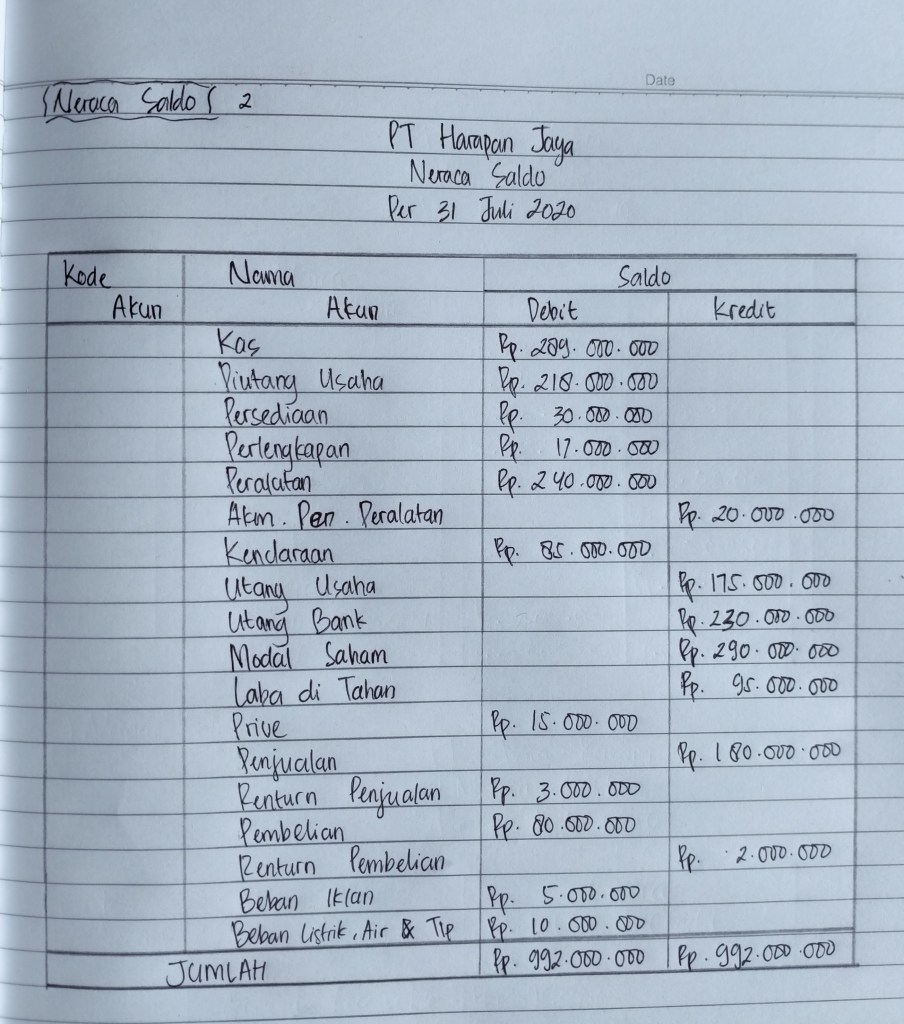 Date
Neraca Saldo 2
PT Harapan Jaya
Neraca Saldo
Per 31 Juli 2020
Kode Nama Saldo
Akun Akun Debit Kredit
Kas Rp. 289.000.000
Piutang Usaha Rp. 218.000.000
Persediaan Rp. 30.000.000
Perlengkapan Rp. 17.000.000
Peralatan Rp. 240.000.000
Akm. Pen. Peralatan Rp. 20.000.000
Kendaraan Rp. 85.000.000
Utang Usaha Rp. 175.000.000
Utang Bank Rp. 230.000.000
Modal Saham Rp. 290.000.000
Laba di Tahan Rp. 95.000.000
Prive Rp. 15.000.000
Penjualan Rp. 180.000.000
Renturn Penjualan Rp. 3.000.000
Pembelian Rp. 80.000.000
Renturn Pembelian Rp. 2.000.000
Beban Iklan Rp. 5.000.000
Beban Listrik, Air & Tlp Rp. 10.000.000
JUMLAH Rp. 992.000.000 Rp. 992.000.000